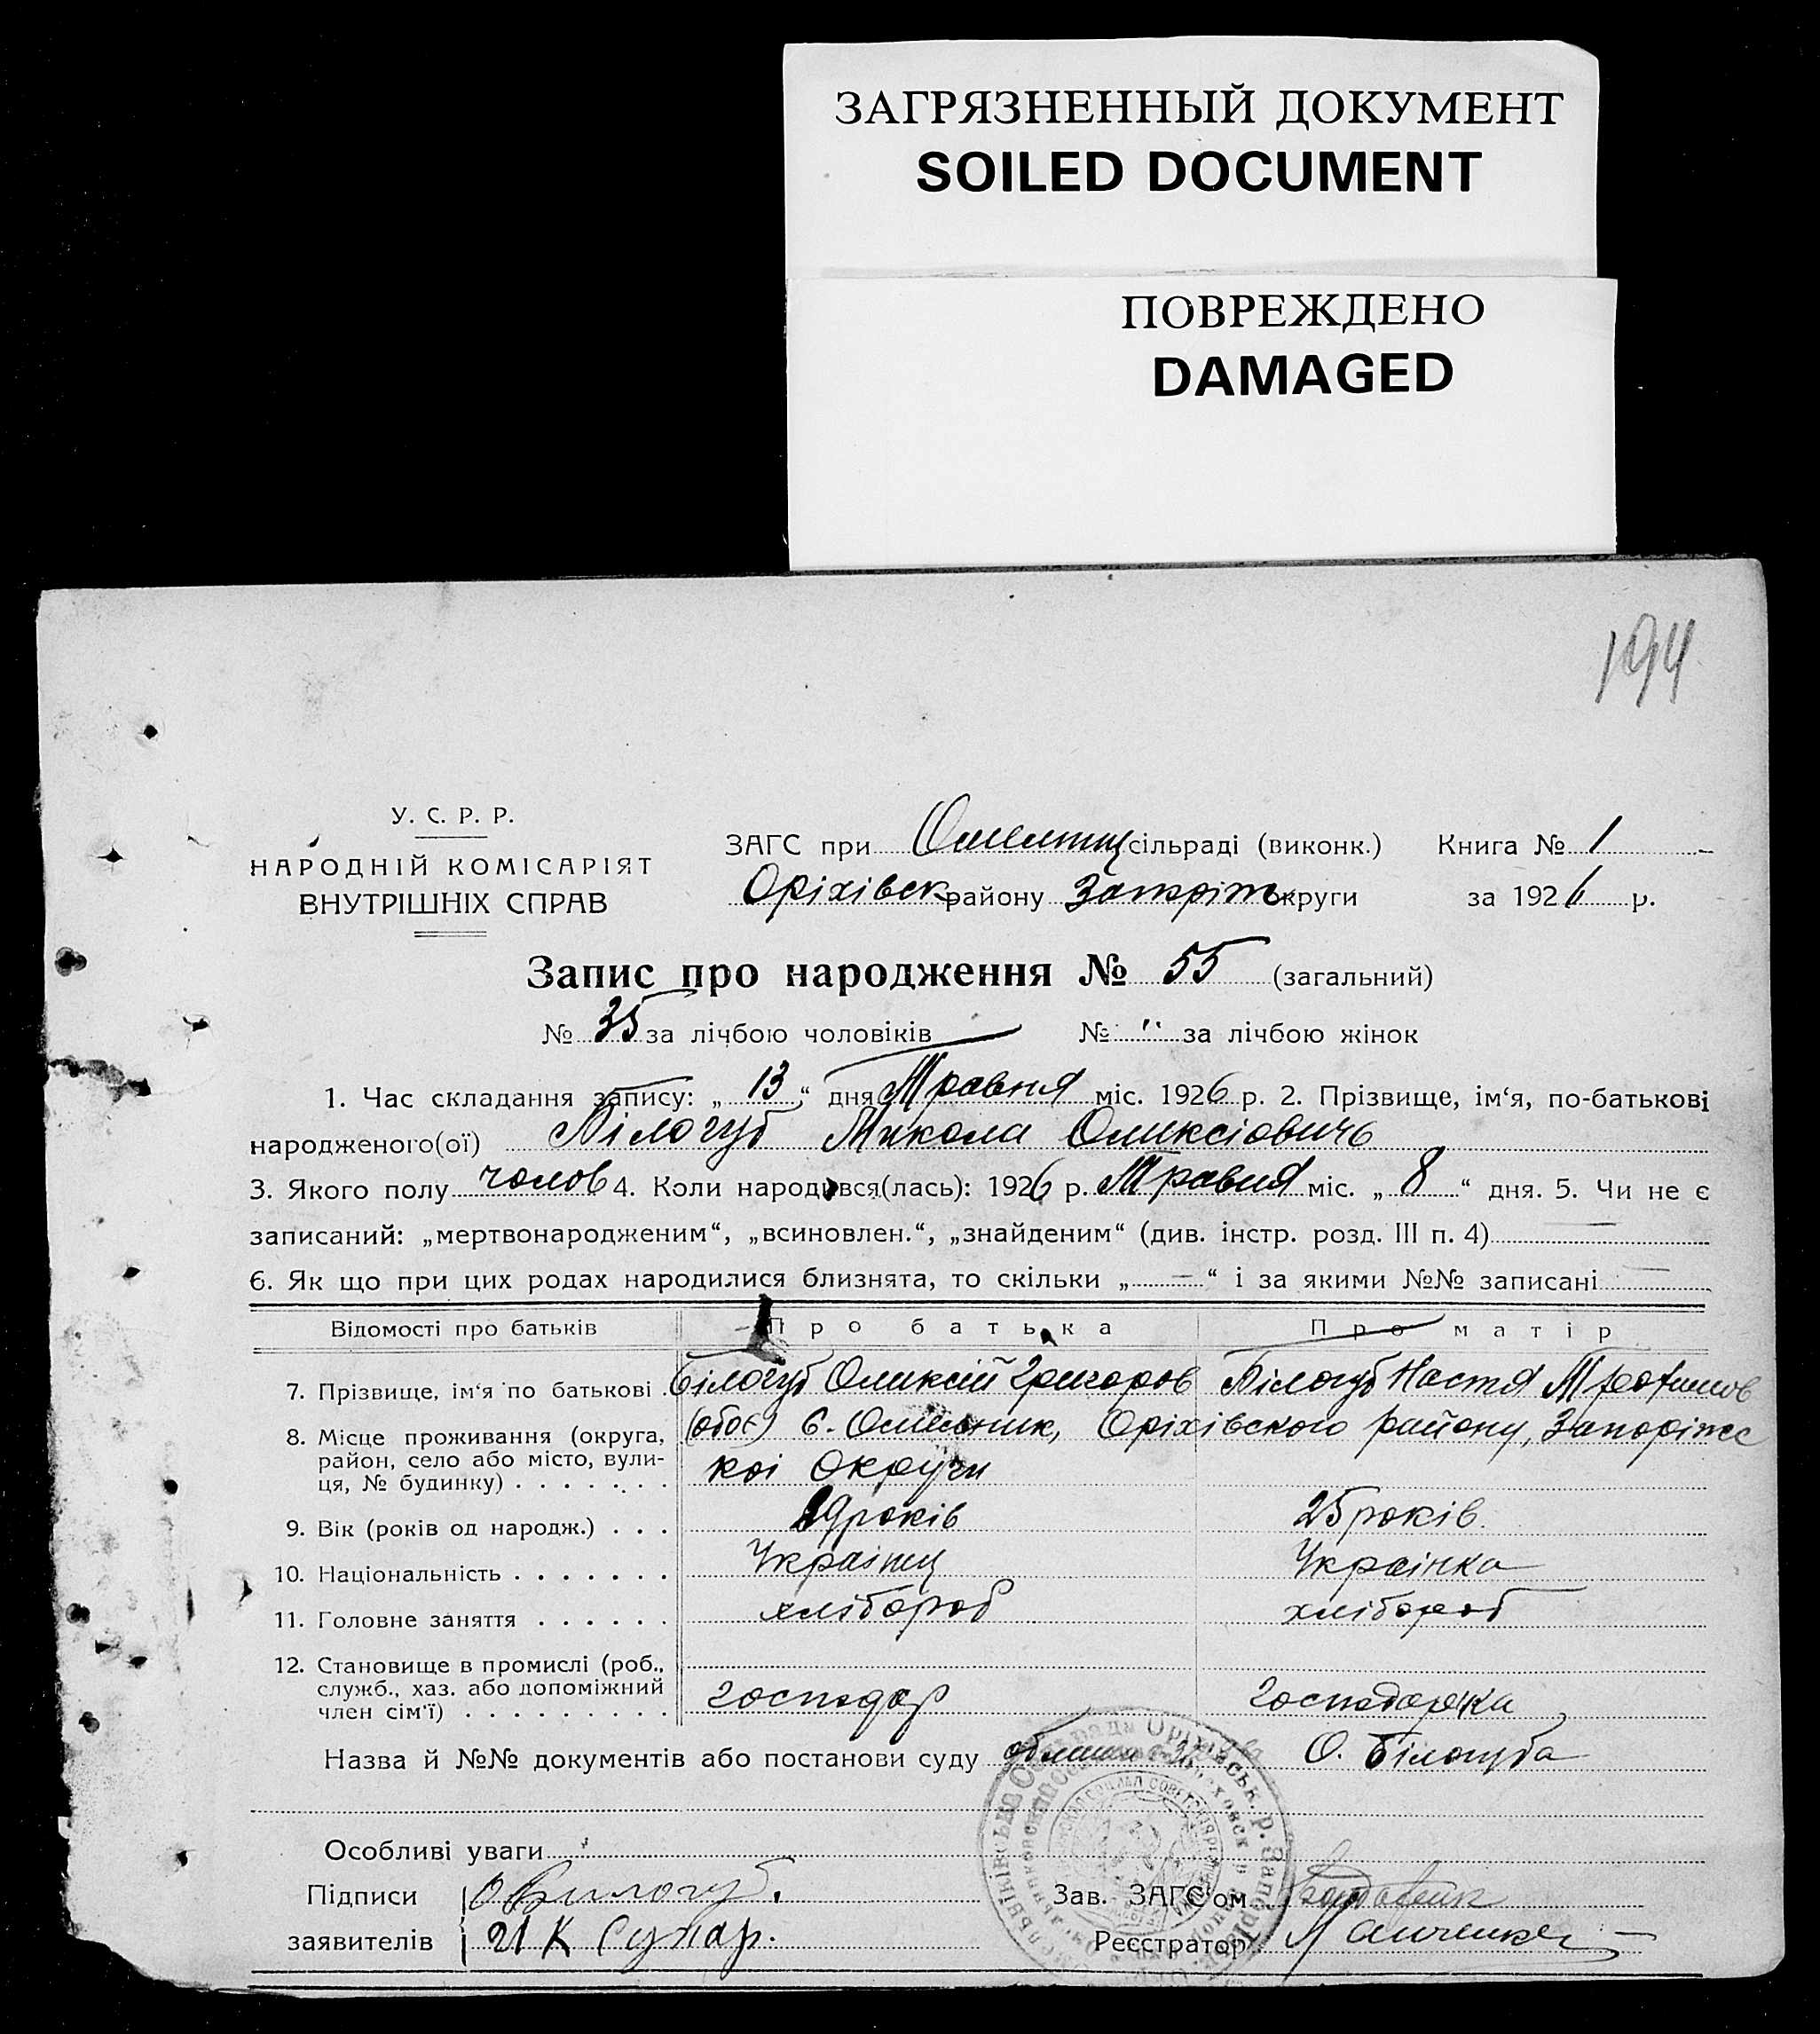 ЗАГРЯЗНЕННЫЙ ДОКУМЕНТ
SOILED DOCUMENT
ПОВРЕЖДЕНО
DAMAGED
194
У. С. Р. Р.
НАРОДНІЙ КОМІСАРІЯТ
ВНУТРІШНІХ СПРАВ
ЗАГС при сільраді (виконк.) Книга № 1
Оріхівськ району Запоріж округи за 1926 р.
Запис про народження № 55 (загальний)
№ 35 за лічбою чоловіків № " за лічбою жінок
1. Час складання запису: „ 13 “ дня Травня міс. 1926 р. 2. Прізвище, ім‘я, по-батькові
народженого(ої) Білогуб Микола Оликсіовичь
3. Якого полу чолов 4. Коли народився(лась): 1926 р. Травня міс. „ 8 “ дня. 5. Чи не є
записаний: „мертвонародженим“, „всиновлен.“, „знайденим“ (див. інстр. розд. III п. 4) —
6. Як що при цих родах народилися близнята, то скільки „ — “ і за якими №№ записані —
Відомості про батьків Про батька Про матір
7. Прізвище, ім‘я по батькові Білогуб Оликсій Григоров Білогуб Настя
8. Місце проживання (округа, район, село або місто, вули-ця, № будинку) (обоє) с. Омельник, Оріхівского району, Запоріжс
кої Округи
9. Вік (років од народж.) 29 років 25 років.
10. Національність Українц Українка
11. Головне заняття хлібороб хлібороб
12. Становище в промислі (роб., служб., хаз. або допоміжний член сім‘ї) господар господарка
Назва й №№ документів або постанови суду О. Білогуба
Особливі уваги
Підписи О Билогуб.
Зав. ЗАГС‘ом
заявителів
Реєстратор